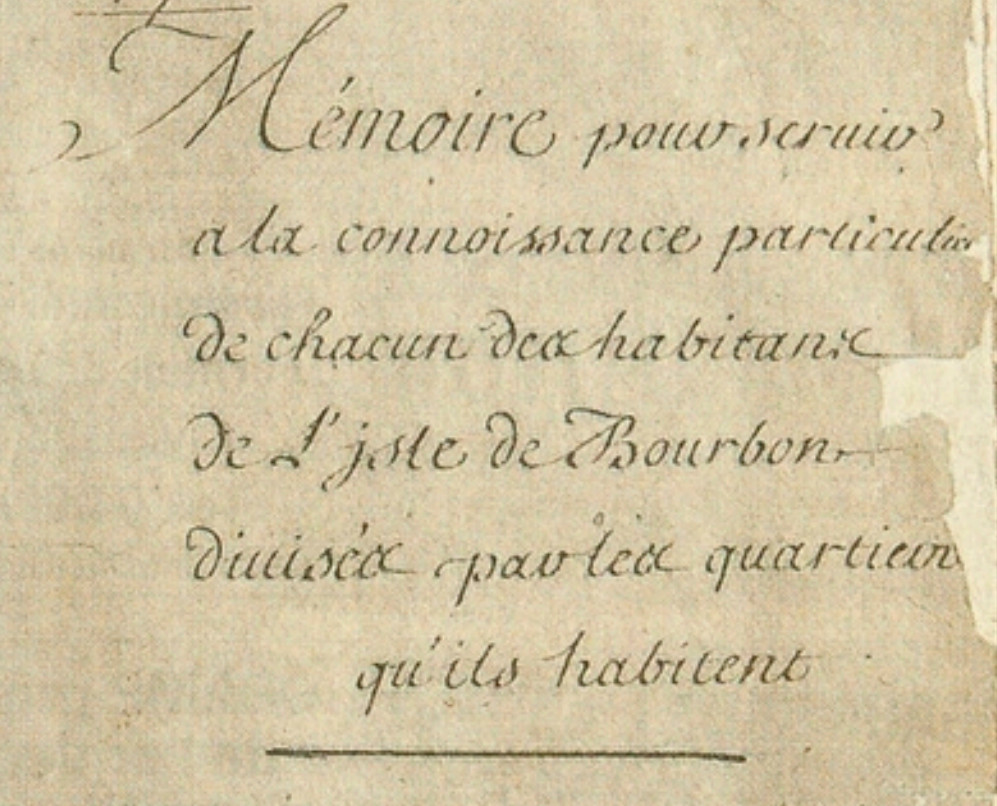 Mémoire pour seruir
a la connoissance particulie
de chacun des habitans
de L'jsle de Bourbon
diuisés par les quartiers
qu'ils habitent